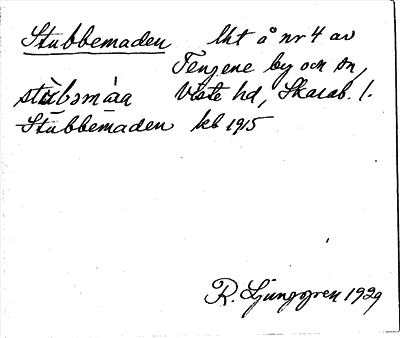 Stubbemaden lht å nr 4 av
Tengene by och sn,
stùbəmàa Viste hd, Skarab. l.
Stubbemaden kb 1915
R. Ljunggren 1929